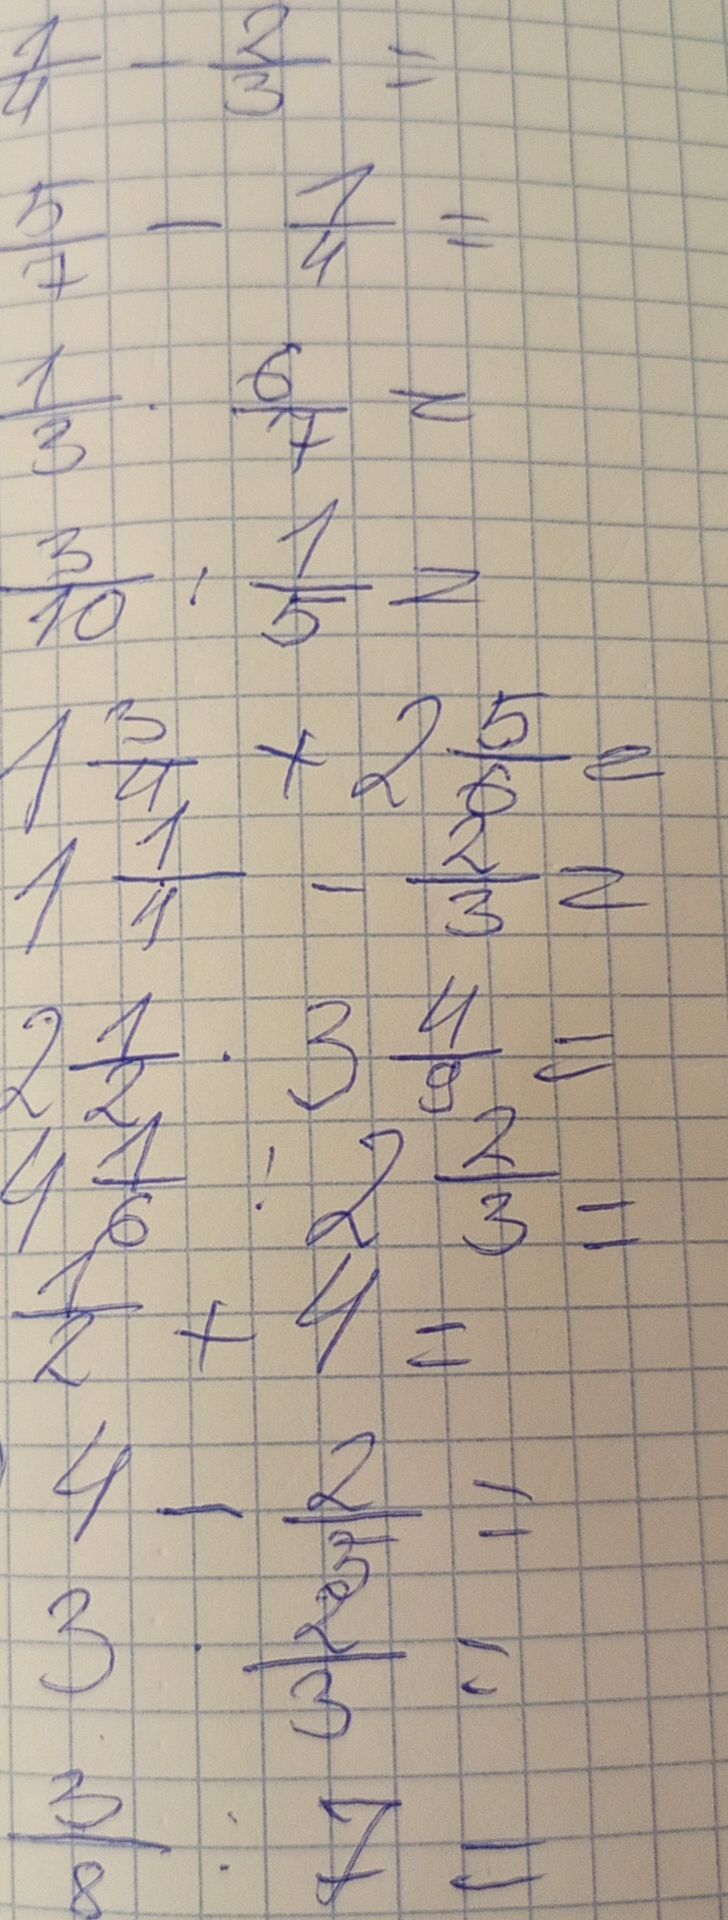 1/4 - 2/3 =
5/7 - 1/4 =
1/3 · 6/7 =
3/10 : 1/5 =
1 3/4 + 2 5/6 =
1 1/4 - 2/3 =
2 1/2 · 3 4/9 =
4 1/6 : 2 2/3 =
1/2 + 4 =
4 - 2/5 =
3 · 2/3 =
3/8 : 7 =